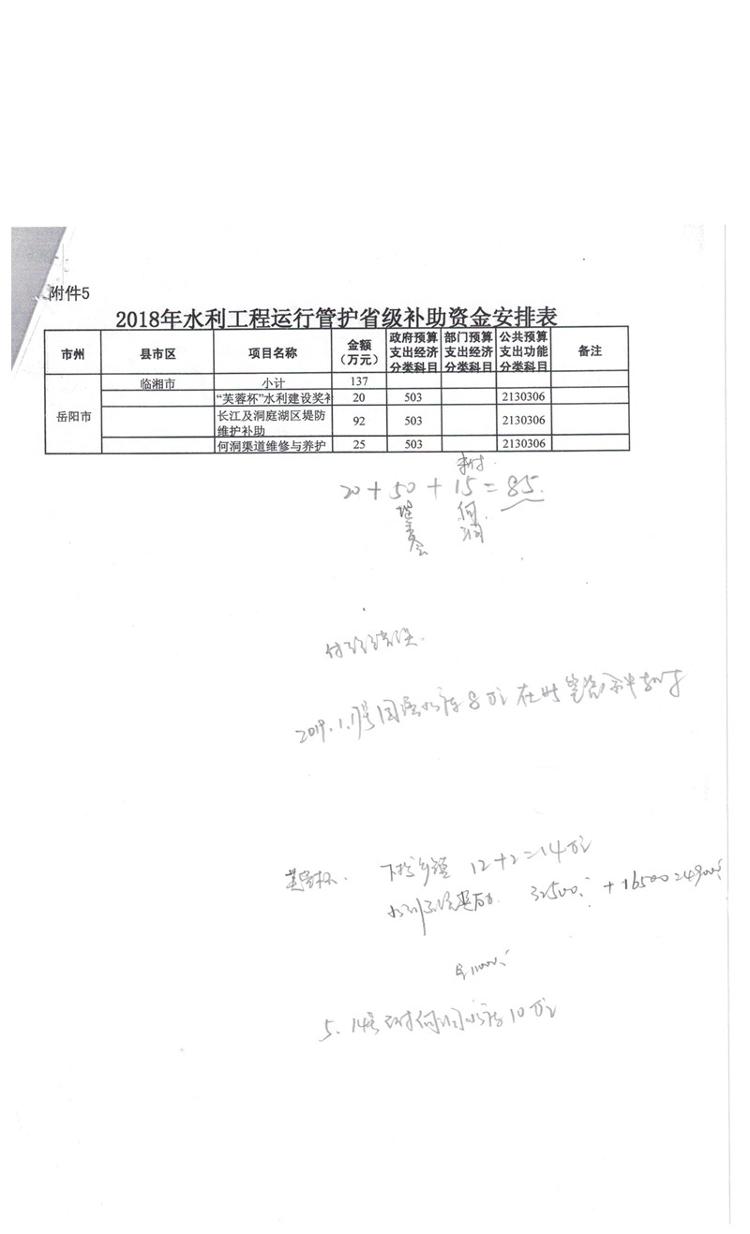 附件5
2018年水利工程运行管护省级补助资金安排表
市州 县市区 项目名称 金额（万元） 政府预算支出经济分类科目 部门预算支出经济分类科目 公共预算支出功能分类科目 备注
岳阳市 临湘市 小计 137
“芙蓉杯”水利建设奖补 20 503 2130306
长江及洞庭湖区堤防维护补助 92 503 2130306
何洞渠道维修与养护 25 503 2130306
未付
20+50+15=85.
堤委会 何洞
2019.1. 8万 在
芙蓉杯. 下拨乡镇 12+2=14万
32500 +16500=49000
5.14 付何洞水库10万